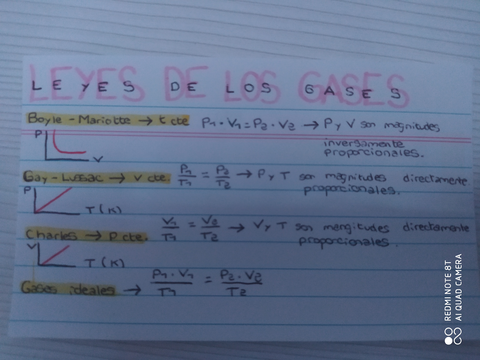 LEYES DE LOS GASES
LEYES DE LOS GASES
Boyle-Mariotte → t cte P₁·V₁=P₂·V₂ → P y V son magnitudes
inversamente
proporcionales.
P
V
Gay-Lussac → V cte. P₁/T₁ = P₂/T₂ → P y T son magnitudes directamente
proporcionales.
P
T (K)
Charles → P cte. V₁/T₁ = V₂/T₂ → V y T son mangitudes directamente
proporcionales.
V
T (K)
Gases ideales → P₁·V₁/T₁ = P₂·V₂/T₂
REDMI NOTE 8T
AI QUAD CAMERA